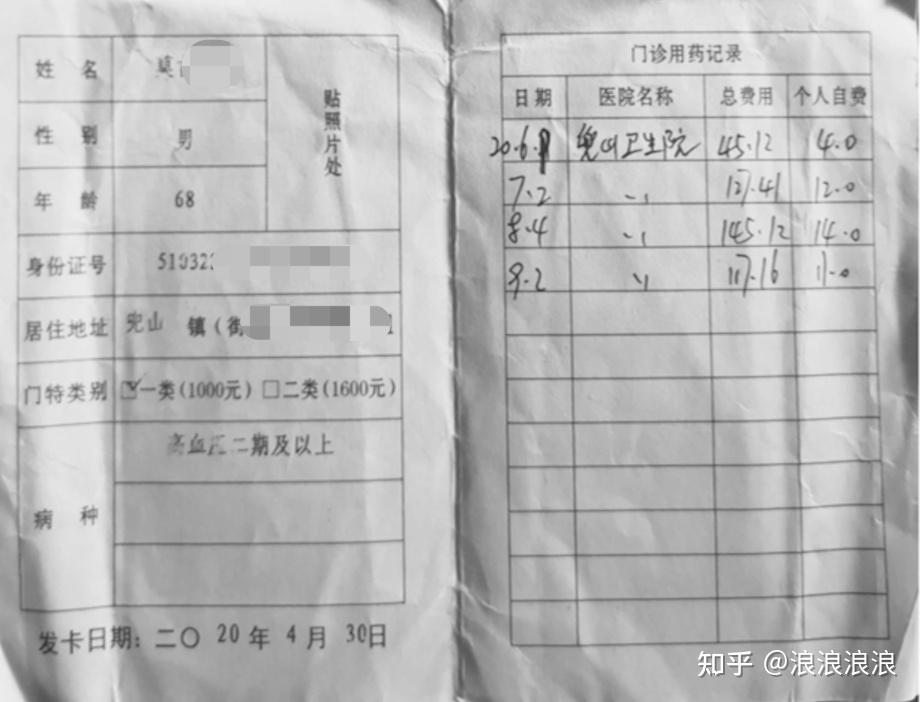 姓 名 莫
贴照片处
性 别 男
年 龄 68
身份证号 510322
居住地址 兜山 镇（街
门特类别 ☑一类(1000元) □二类(1600元)
病 种 高血压二期及以上
发卡日期：二〇 20 年 4 月 30日
门诊用药记录
日期 医院名称 总费用 个人自费
20.6.1 兜山卫生院 45.12 4.0
7.2 〃 127.41 12.0
8.4 〃 145.12 14.0
9.2 〃 117.16 11.0
知乎 @浪浪浪浪